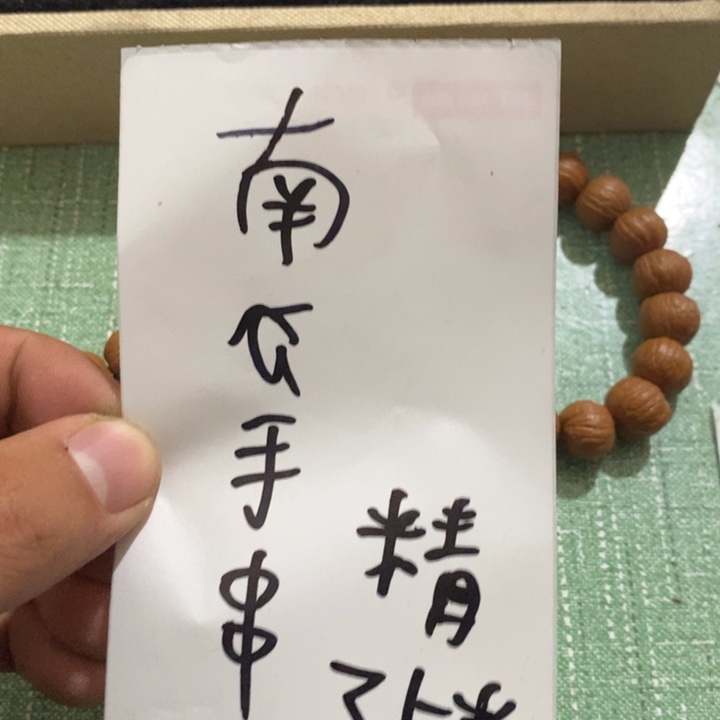 南瓜手串
精